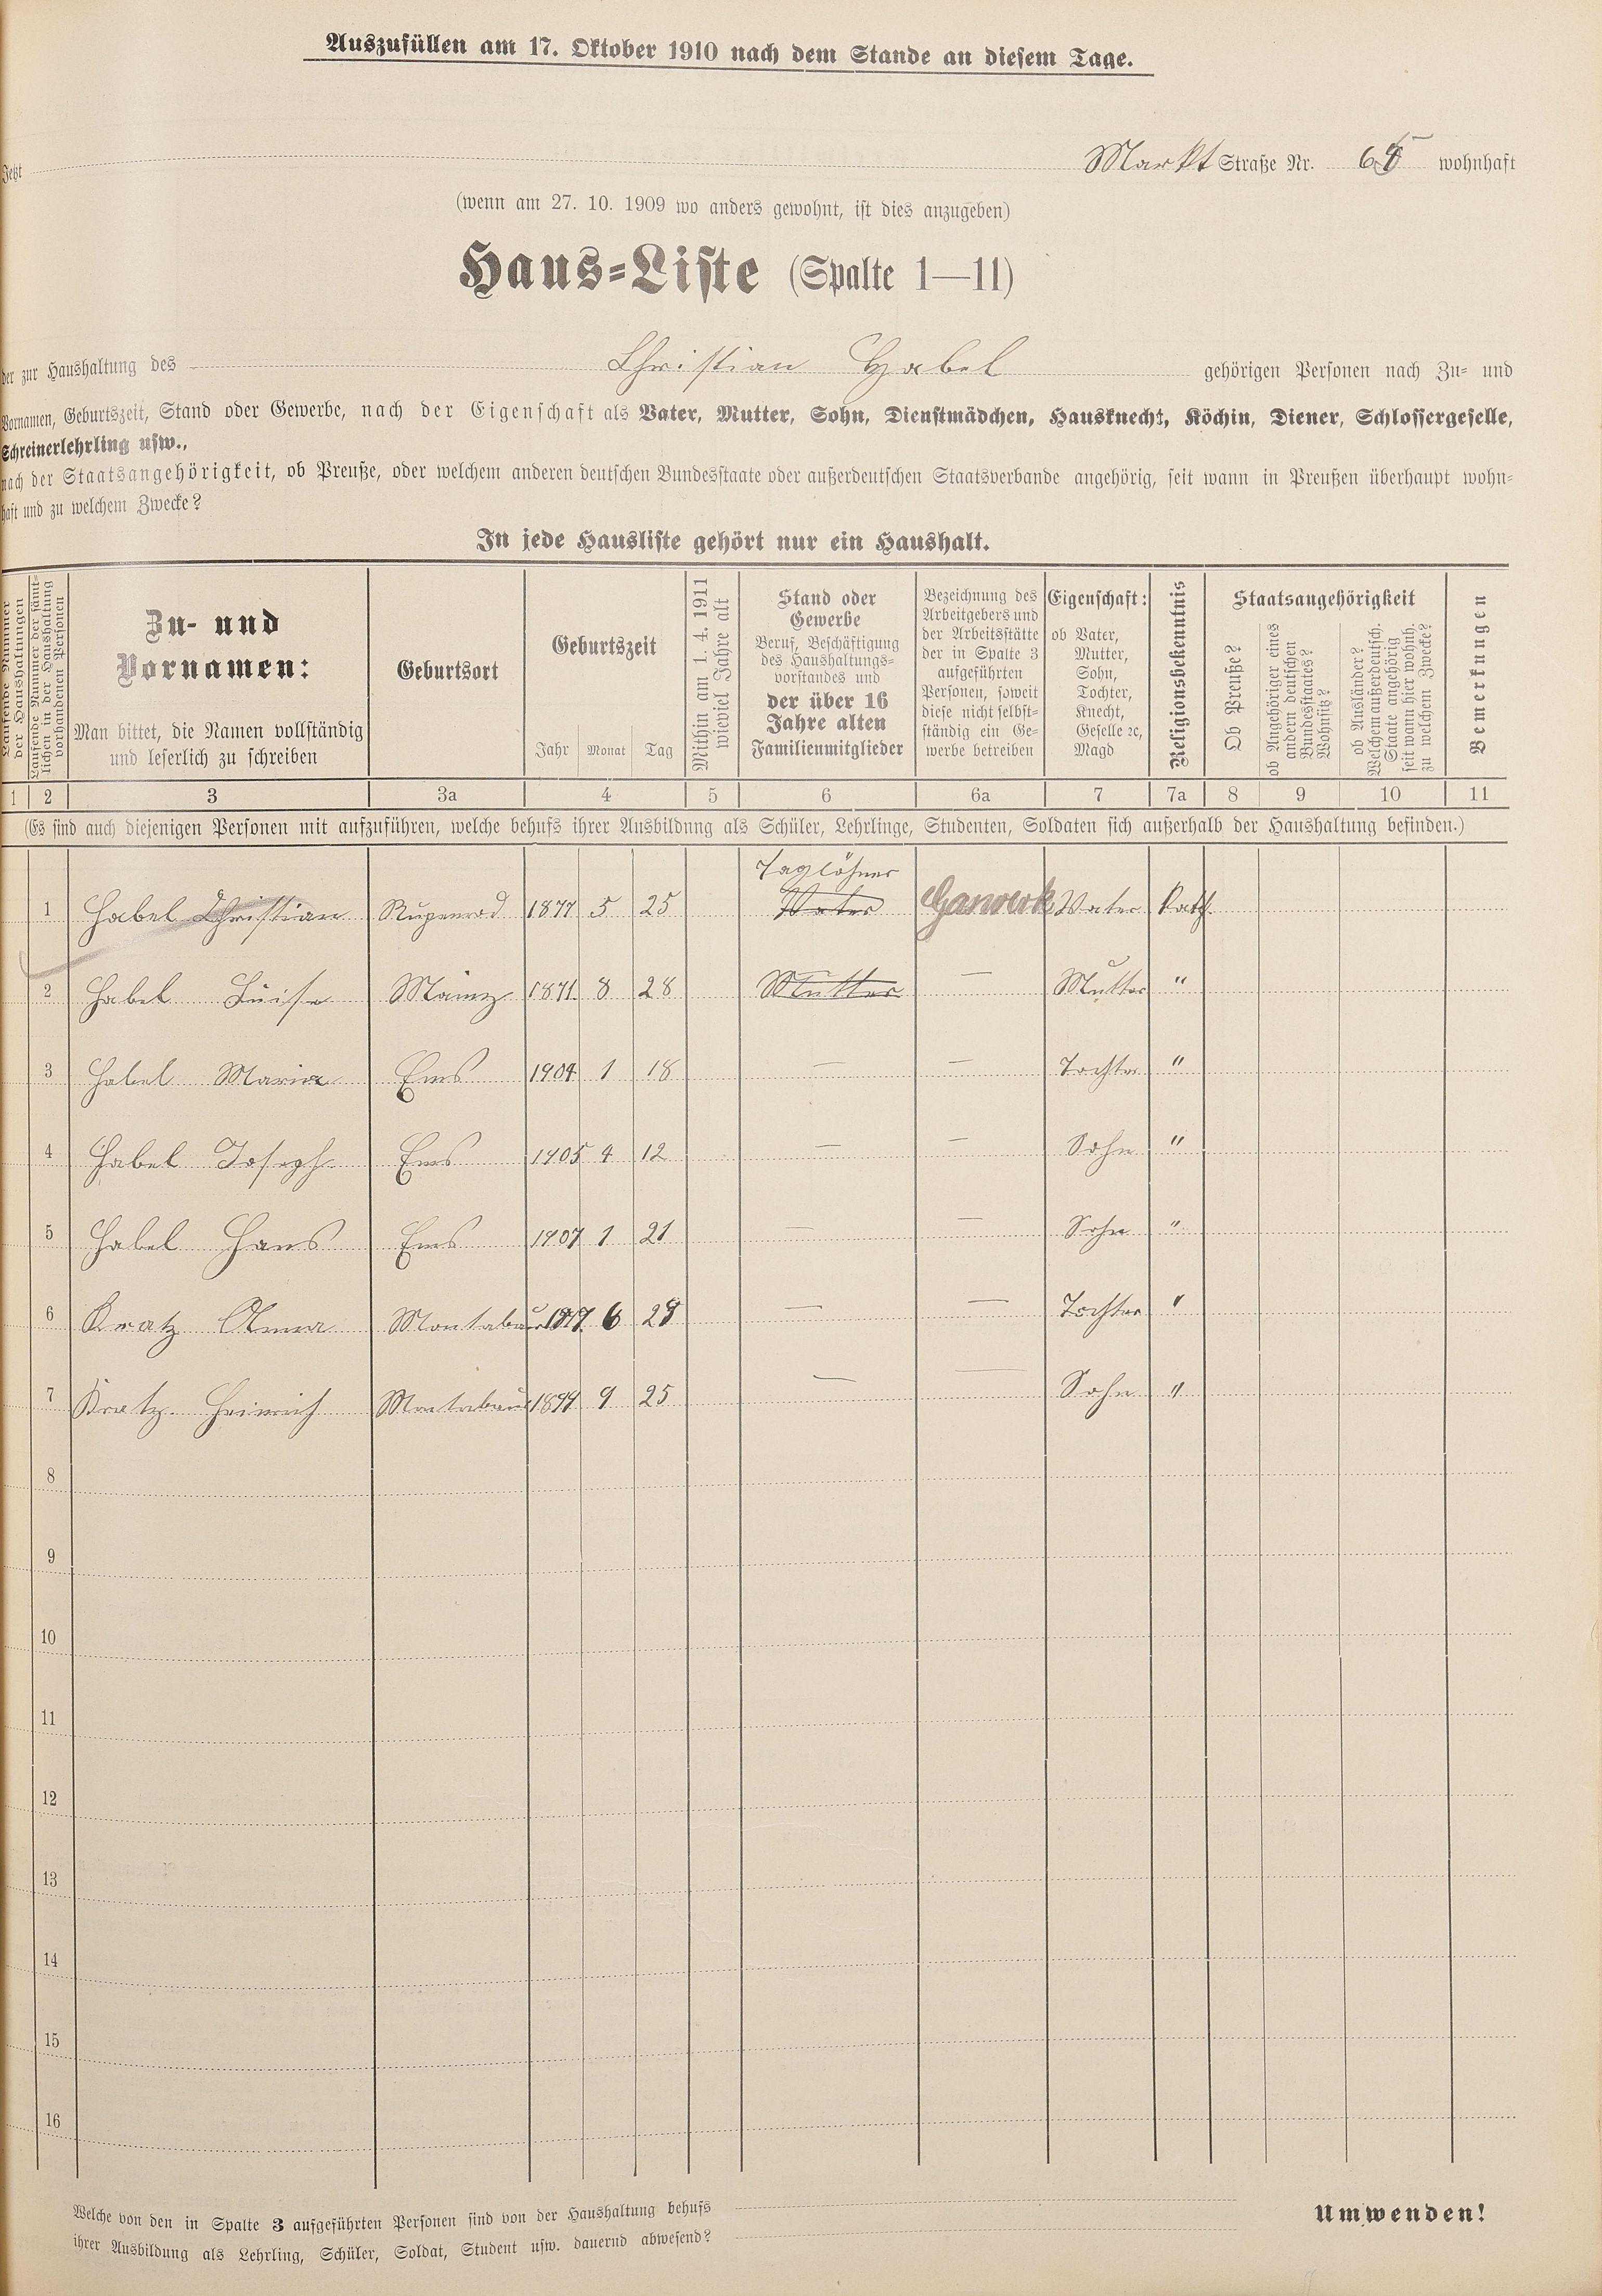 Auszufüllen am 17. Oktober 1910 nach dem Stande an diesem Tage.
Jetzt Markt Straße Nr. 65 wohnhaft
(wenn am 27. 10. 1909 wo anders gewohnt, ist dies anzugeben)
Haus-Liste (Spalte 1—11)
der zur Haushaltung des Christian Habel gehörigen Personen nach Zu- und
Vornamen, Geburtszeit, Stand oder Gewerbe, nach der Eigenschaft als Vater, Mutter, Sohn, Dienstmädchen, Hausknecht, Köchin, Diener, Schlossergeselle,
Schreinerlehrling usw.,
nach der Staatsangehörigkeit, ob Preuße, oder welchem anderen deutschen Bundesstaate oder außerdeutschen Staatsverbande angehörig, seit wann in Preußen überhaupt wohn-
haft und zu welchem Zwecke?
In jede Hausliste gehört nur ein Haushalt.
Laufende Nummer der Haushaltungen
Laufende Nummer der sämt-
lichen in der Haushaltung
vorhandenen Personen
Zu- und
Vornamen:
Man bittet, die Namen vollständig
und leserlich zu schreiben
Geburtsort
Geburtszeit
Jahr Monat Tag
Mithin am 1. 4. 1911
wieviel Jahre alt
Stand oder
Gewerbe
Beruf, Beschäftigung
des Haushaltungs-
vorstandes und
der über 16
Jahre alten
Familienmitglieder
Bezeichnung des
Arbeitgebers und
der Arbeitsstätte
der in Spalte 3
aufgeführten
Personen, soweit
diese nicht selbst-
ständig ein Ge-
werbe betreiben
Eigenschaft:
ob Vater,
Mutter,
Sohn,
Tochter,
Knecht,
Geselle ꝛc,
Magd
Religionsbekenntnis
Staatsangehörigkeit
Ob Preuße?
ob Angehöriger eines
andern deutschen
Bundesstaates?
Wohnsitz?
ob Ausländer?
Welchem außerdeutsch.
Staate angehörig
seit wann hier wohnh.
zu welchem Zwecke?
Bemerkungen
1 2 3 3a 4 5 6 6a 7 7a 8 9 10 11
(Es sind auch diejenigen Personen mit aufzuführen, welche behufs ihrer Ausbildung als Schüler, Lehrlinge, Studenten, Soldaten sich außerhalb der Haushaltung befinden.)
Taglöhner
1 Habel Christian Rupenrod 1877 5 25 Vater Gaswerk Vater Kath.
2 Habel Luise Mainz 1871 8 28 Mutter — Mutter "
3 Habel Maria Ems 1904 1 18 — — Tochter "
4 Habel Joseph Ems 1905 4 12 — — Sohn "
5 Habel Hans Ems 1907 1 21 — — Sohn "
6 Kratz Anna Montabaur 6 — — Tochter "
7 Kratz Heinrich Montabaur 1899 9 25 — — Sohn "
8
9
10
11
12
13
14
15
16
Welche von den in Spalte 3 aufgeführten Personen sind von der Haushaltung behufs
ihrer Ausbildung als Lehrling, Schüler, Soldat, Student usw. dauernd abwesend?
Umwenden!